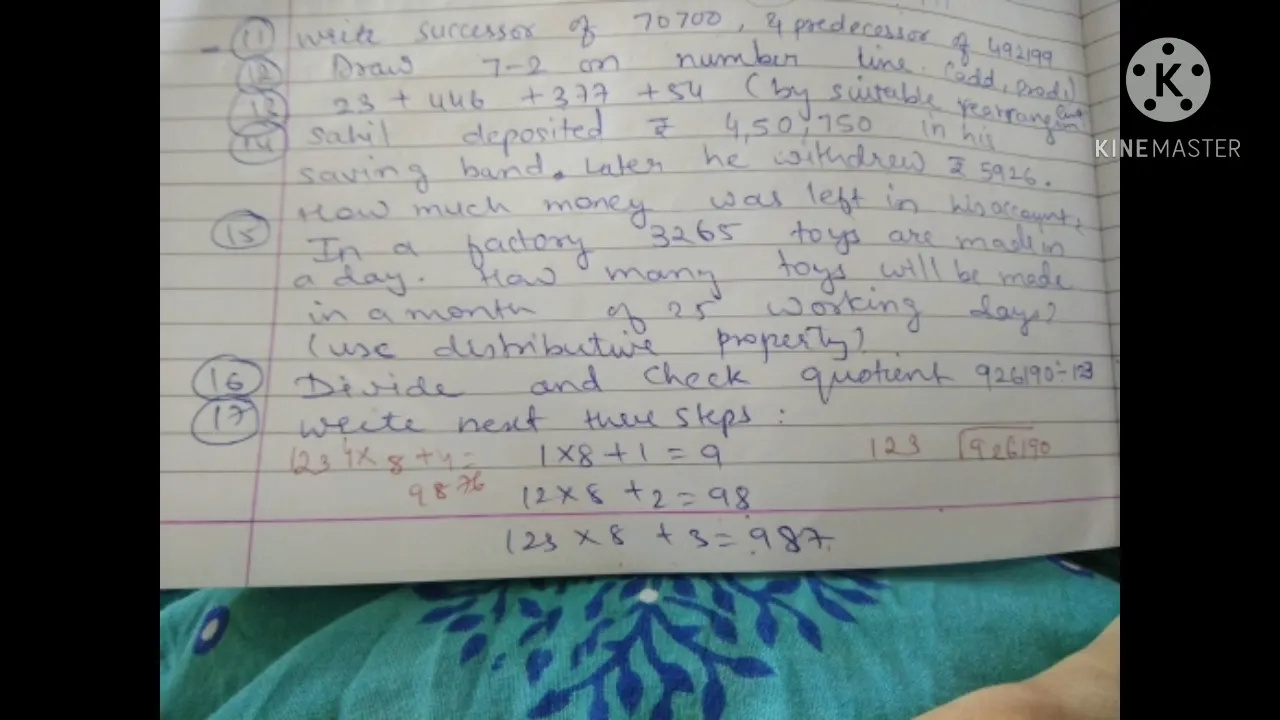 (11) Write successor of 70700, & predecessor of 492199
(12) Draw 7-2 on number line. (add, prod)
(13) 23 + 446 + 377 + 54 (by suitable rearrangement)
(14) Sahil deposited ₹ 4,50,750 in his
saving band. Later he withdrew ₹ 5926.
How much money was left in his account?
(15) In a factory 3265 toys are made in
a day. How many toys will be made
in a month of 25 working days?
(use distributive property)
(16) Divide and check quotient 926190÷123
(17) Write next three steps:
1×8+1=9
123 926190
1234×8+4=
9876
12×8+2=98
123×8+3=987
K
KINEMASTER